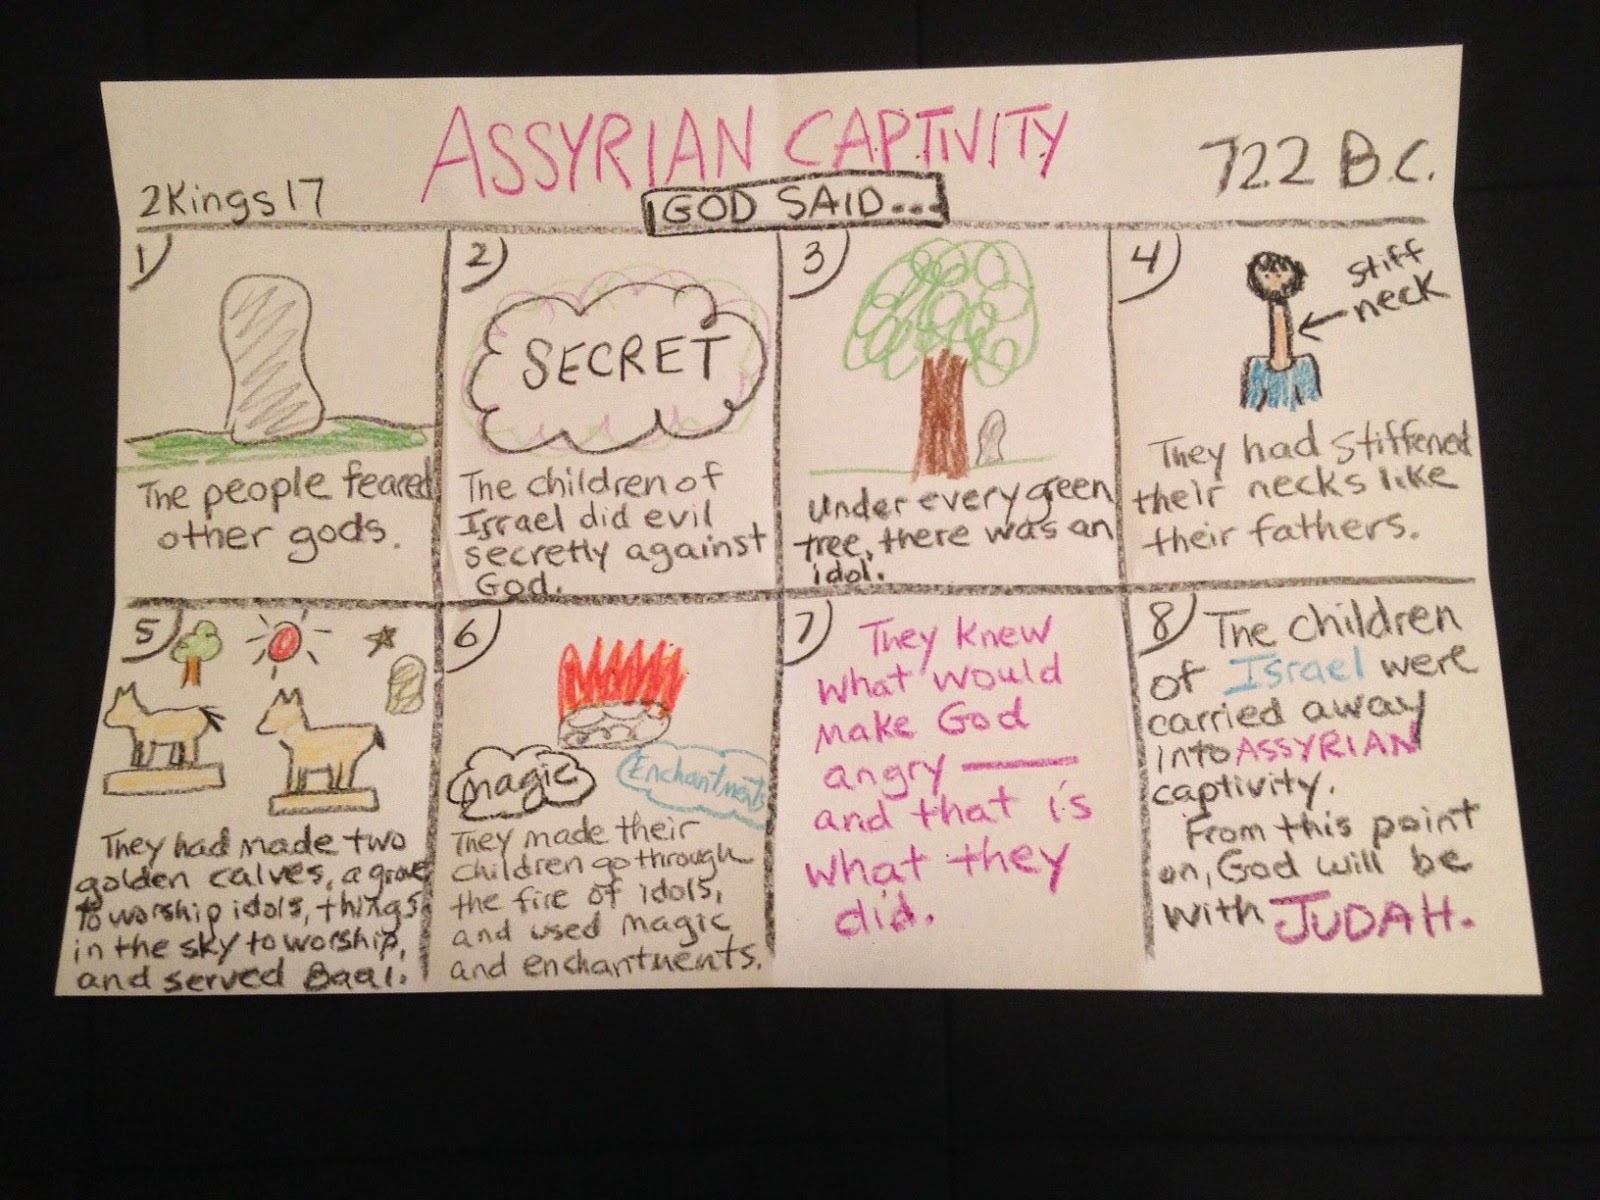 ASSYRIAN CAPTIVITY
2Kings17
722 B.C.
GOD SAID...
1)
The people feared
other gods.
2)
SECRET
The children of
Israel did evil
secretly against
God.
3)
Under every green
tree, there was an
idol.
4)
stiff
neck
They had stiffened
their necks like
their fathers.
5)
They had made two
golden calves, a grove
to worship idols, things
in the sky to worship,
and served Baal.
6)
magic
Enchantments
They made their
children go through
the fire of idols,
and used magic
and enchantments.
7)
They knew
what would
make God
angry —
and that is
what they
did.
8) The children
of Israel were
carried away
into ASSYRIAN
captivity.
From this point
on, God will be
with JUDAH.